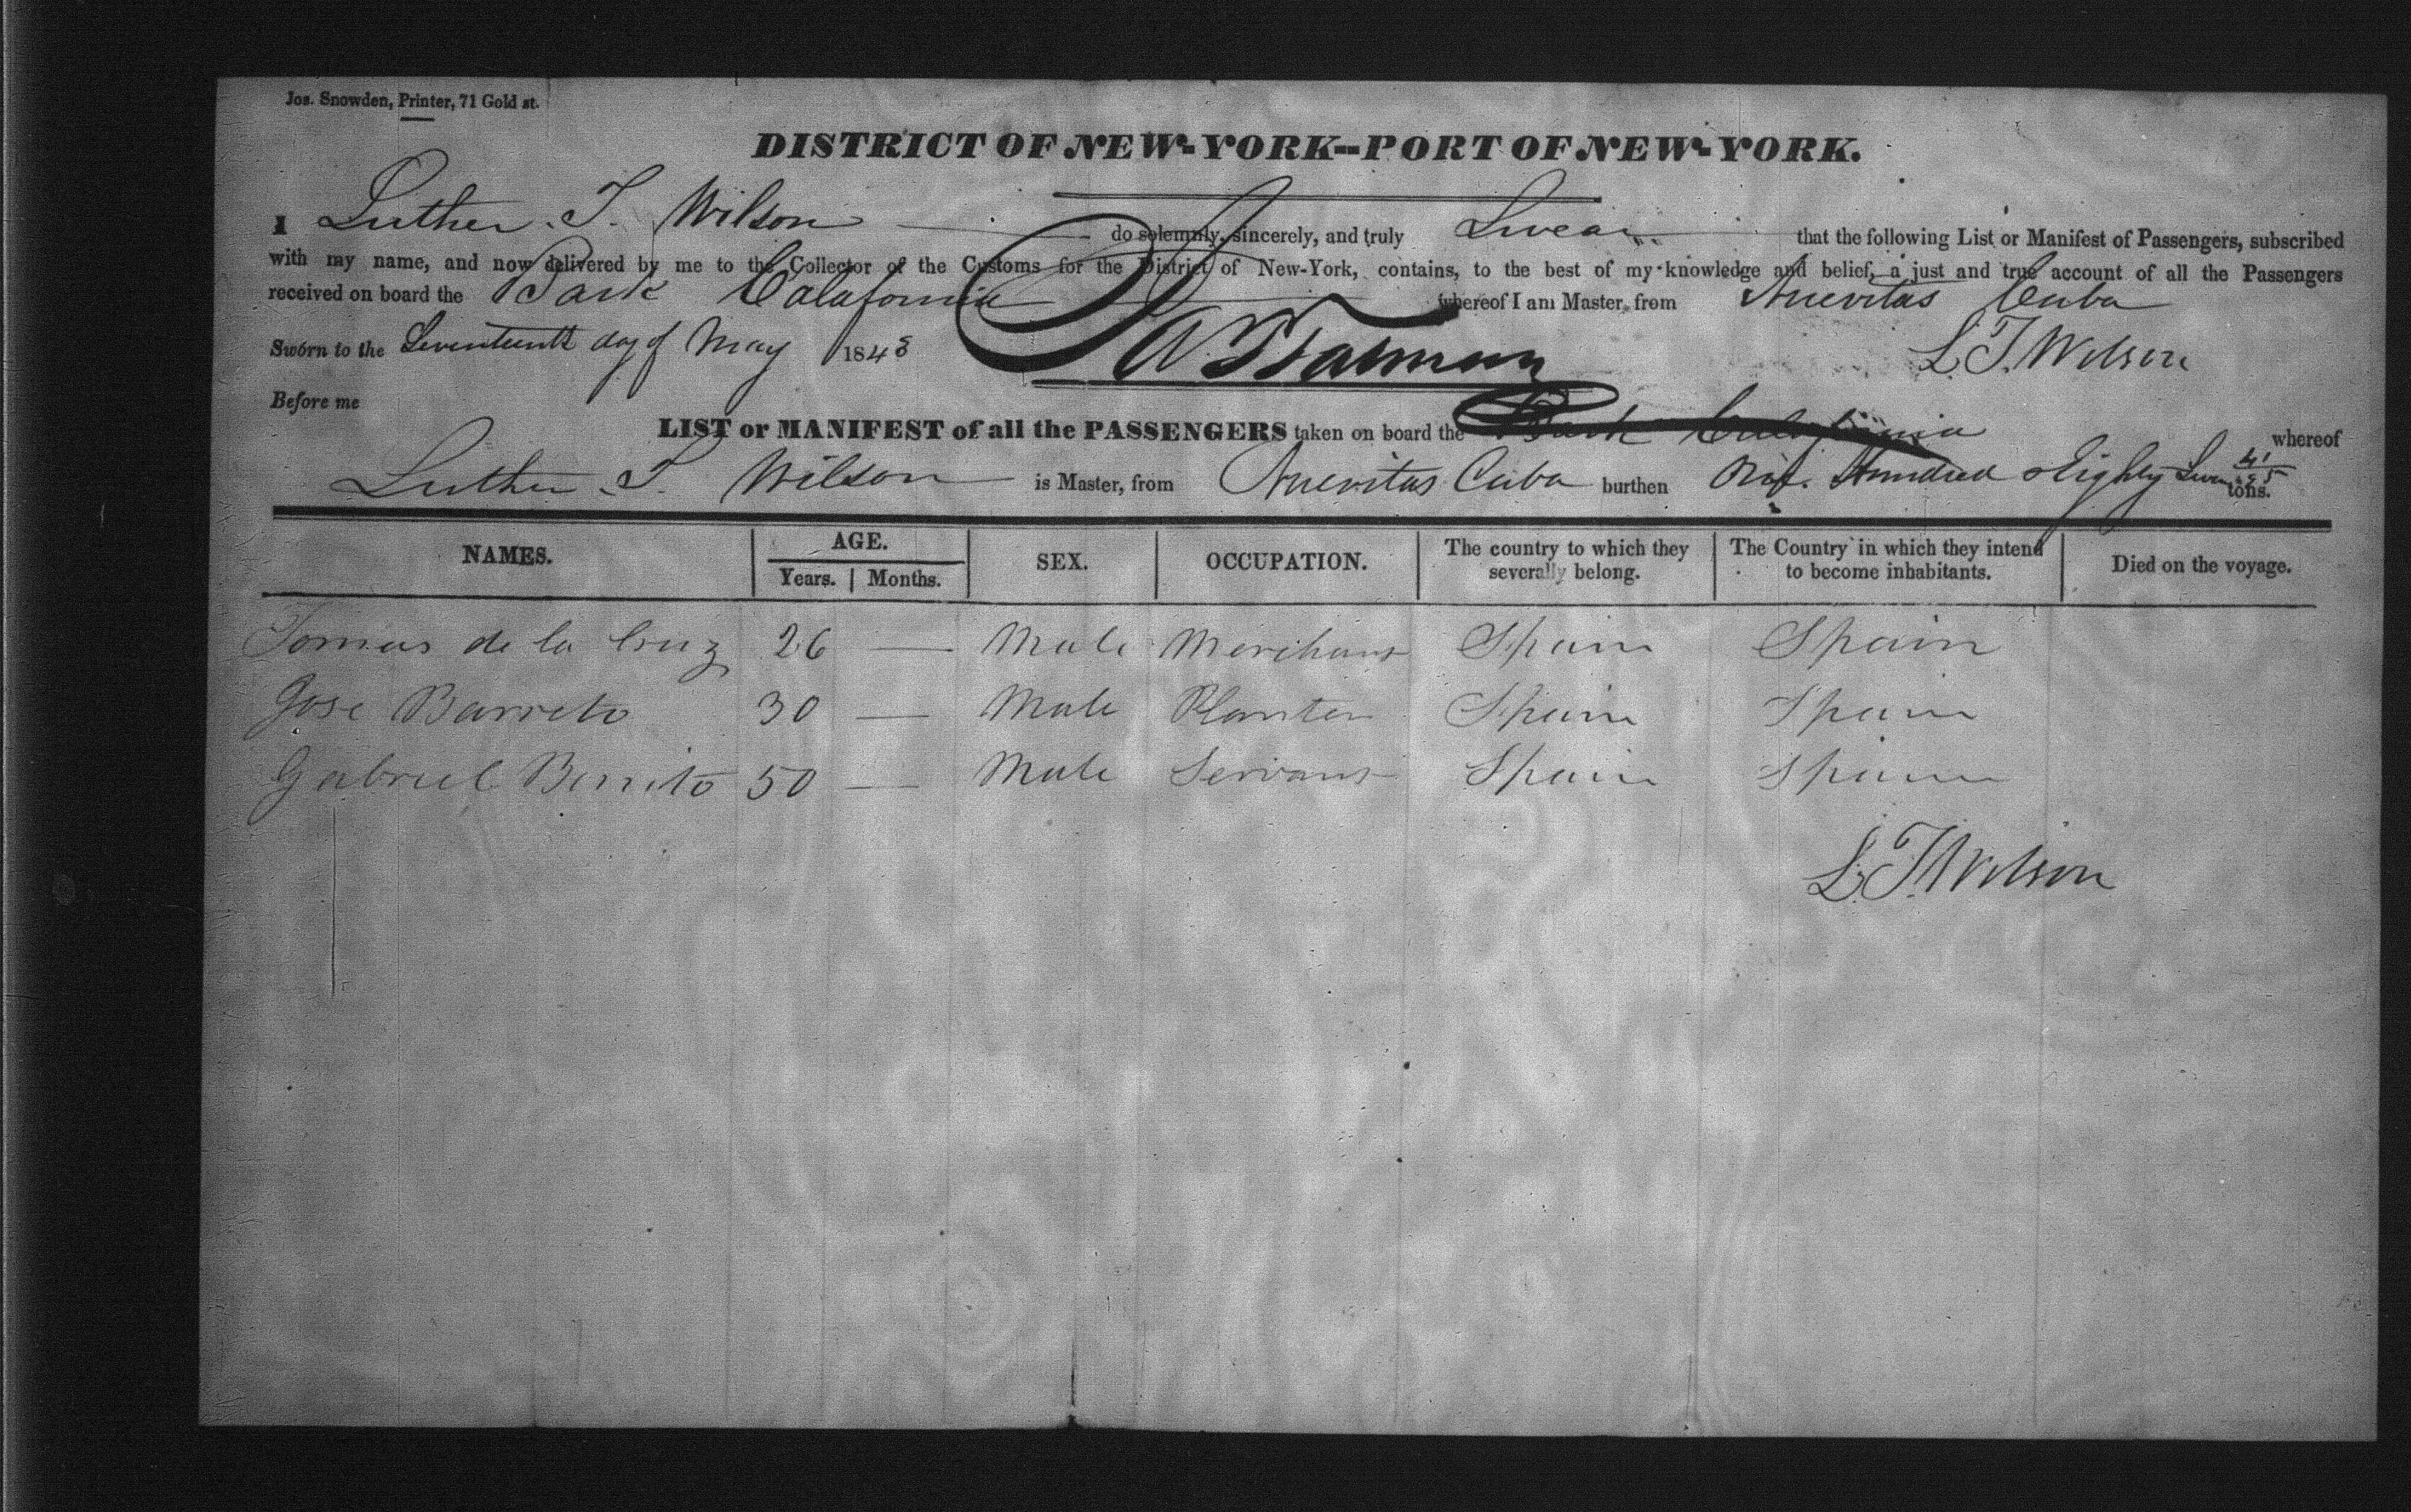 Jos. Snowden, Printer, 71 Gold st.
DISTRICT OF NEW-YORK--PORT OF NEW-YORK.
I Luther. T. Wilson do solemnly, sincerely, and truly Swear that the following List or Manifest of Passengers, subscribed
with my name, and now delivered by me to the Collector of the Customs for the District of New-York, contains, to the best of my knowledge and belief, a just and true account of all the Passengers
received on board the Bark California whereof I am Master, from Nuevitas Cuba
Sworn to the Seventeenth day of May 1848 L. T. Wilson
Before me
LIST or MANIFEST of all the PASSENGERS taken on board the Bark California whereof
Luther. T. Wilson is Master, from Nuevitas Cuba burthen One Hundred Eighty Seven 41/95 tons.
NAMES. AGE. SEX. OCCUPATION. The country to which they severally belong. The Country in which they intend to become inhabitants. Died on the voyage.
Years. Months.
Tomas de la Cruz 26 — Male Merchant Spain Spain
Jose Barreto 30 — Male Planter Spain Spain
Gabriel Berrito 50 — Male Servant Spain Spain
L. T. Wilson